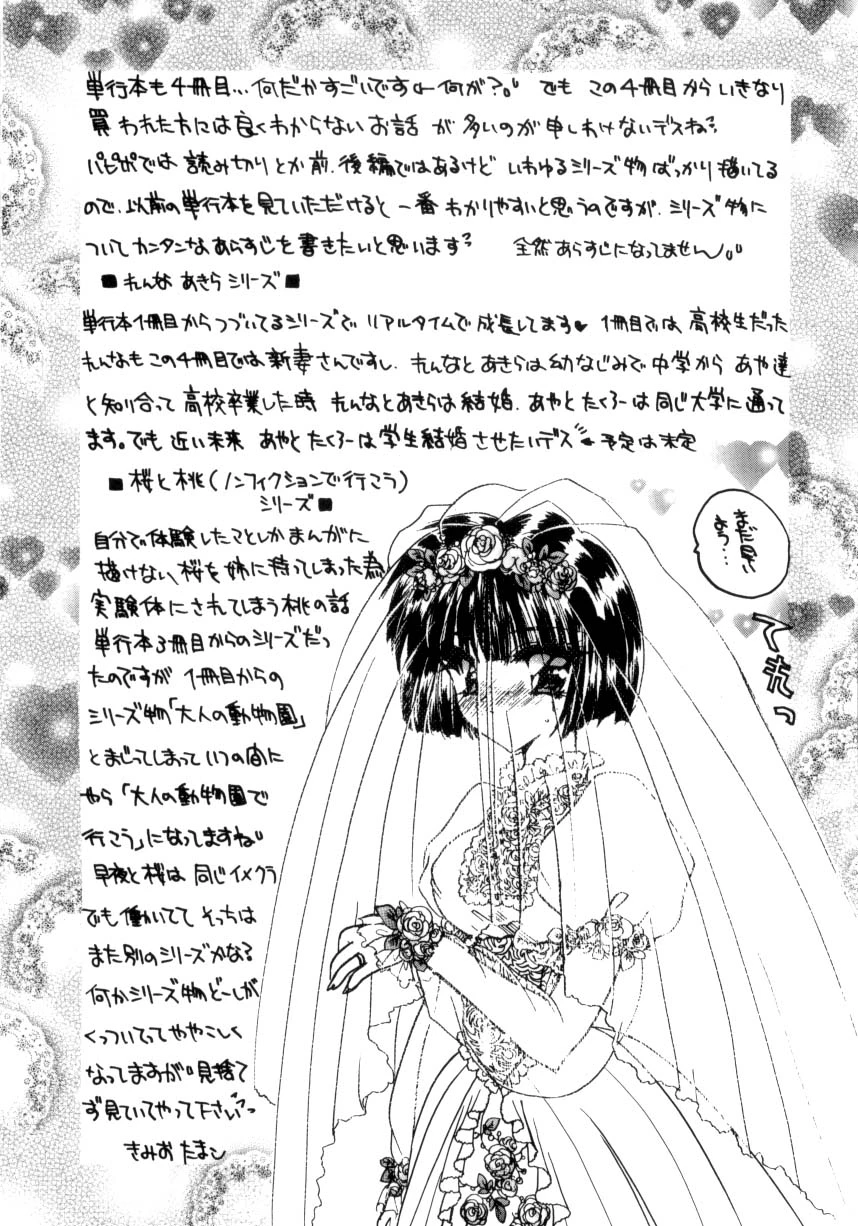 単行本も4冊目…何だかすごいです←何が?。 でも この4冊目から いきなり
買 われた方には良くわからない お話 が 多いのが 申しわけないデスね
パピポでは 読み切りとか前.後編ではあるけど いわゆるシリーズ物 ばっかり 描いてる
ので.以前の単行本を見ていただけると 一番 わかりやすいと思うのですが.シリーズ物に
ついて カンタンな あらすじを 書きたいと思います 全然 あらすじになってません。。
■れんな あきら シリーズ■
単行本1冊目からつづいてるシリーズで リアルタイムで 成長してます♥ 1冊目では 高校生だった
れんなも この4冊目では 新妻さんですし. れんなとあきらは 幼なじみで 中学から あや達
と 知り合って 高校卒業した時 れんなとあきらは 結婚. あやと たくろーは 同じ大学に通って
ます。でも 近い未来 あやと たくろーは 学生結婚 させたいデス ←予定は未定
■ 桜と桃(ノンフィクションで行こう)
シリーズ■
自分で体験したことしか まんがに
描けない、桜を姉に持ってしまった為
実験体にされてしまう 桃の話
単行本3冊目からのシリーズだっ
たのですが 1冊目からの
シリーズ物「大人の動物園」
とまじってしまって いつの間に
やら「大人の動物園で
行こう」になってますね。
早夜と桜は 同じイメクラ
でも 働いてて そっちは
また別のシリーズかなる
何かシリーズ物どーしが
くっついてってややこしく
なってますが 見捨て
ず 見ていてやって下さい
きみお たまこ
まだ早い
よう…
てれっ